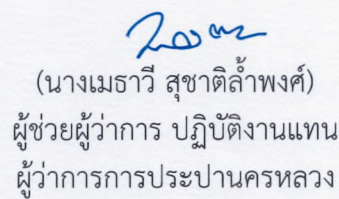 (นางเมธาวี สุชาติล้ำพงศ์)
ผู้ช่วยผู้ว่าการ ปฏิบัติงานแทน
ผู้ว่าการการประปานครหลวง